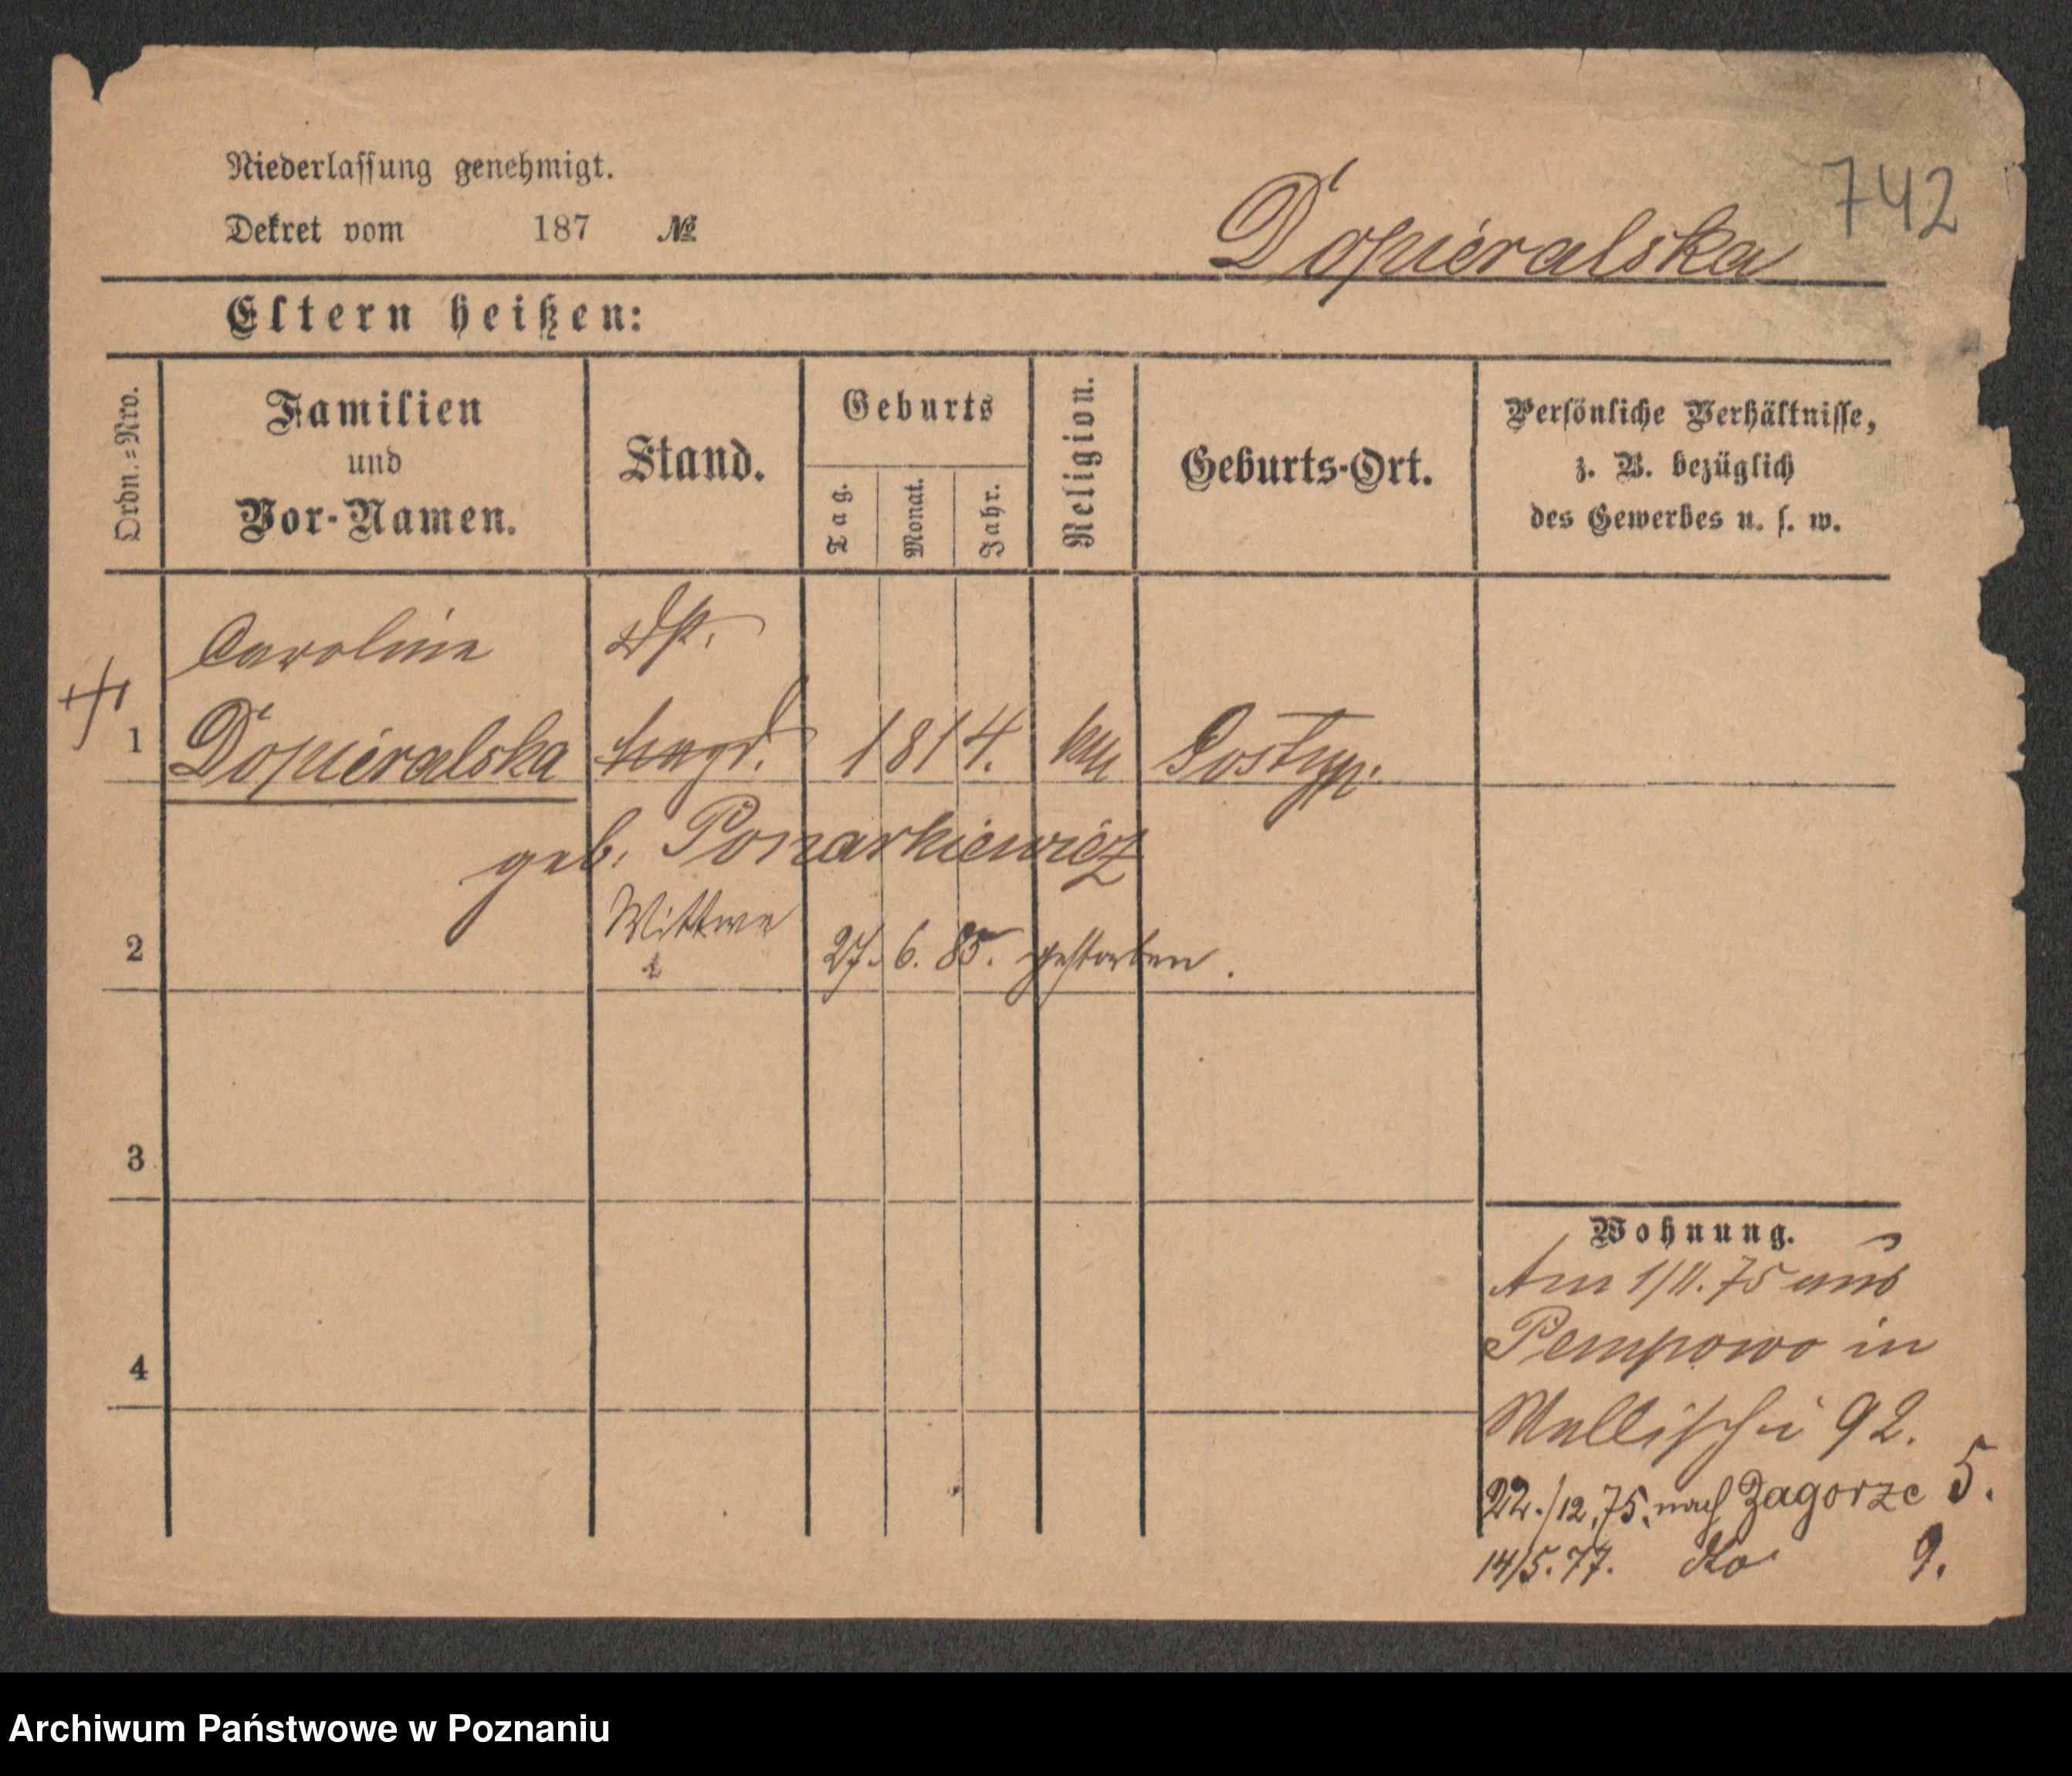 742
Niederlassung genehmigt.
Dekret vom 187 №
Dopieralska
Eltern heißen:
Ordn.=Nro.
Familien
und
Vor-Namen.
Stand.
Geburts
Tag.
Monat.
Jahr.
Religion.
Geburts-Ort.
Persönliche Verhältnisse,
z. B. bezüglich
des Gewerbes u. s. w.
Caroline
1 Dopieralska 1814. kth Gostyn.
geb. Ponarkiewicz
Wittwe
2 27. 6. 85. gestorben.
3
4
Wohnung.
Am 1/11. 75 aus
Pempowo in
Wallischei 92.
22./12. 75. nach Zagorze 5.
14/5. 77. dto 9.
Archiwum Państwowe w Poznaniu